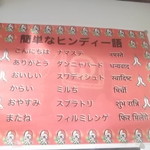 簡単なヒンディー語
こんにちは ナマステ
ありがとう ダンニャバード धन्यवाद
おいしい スワディシュト स्वादिष्ट
からい ミルち मिर्ची
おやすみ スブラトリ शुभ रात्रि
またね フィルミレンゲ फिर मिलेंगे